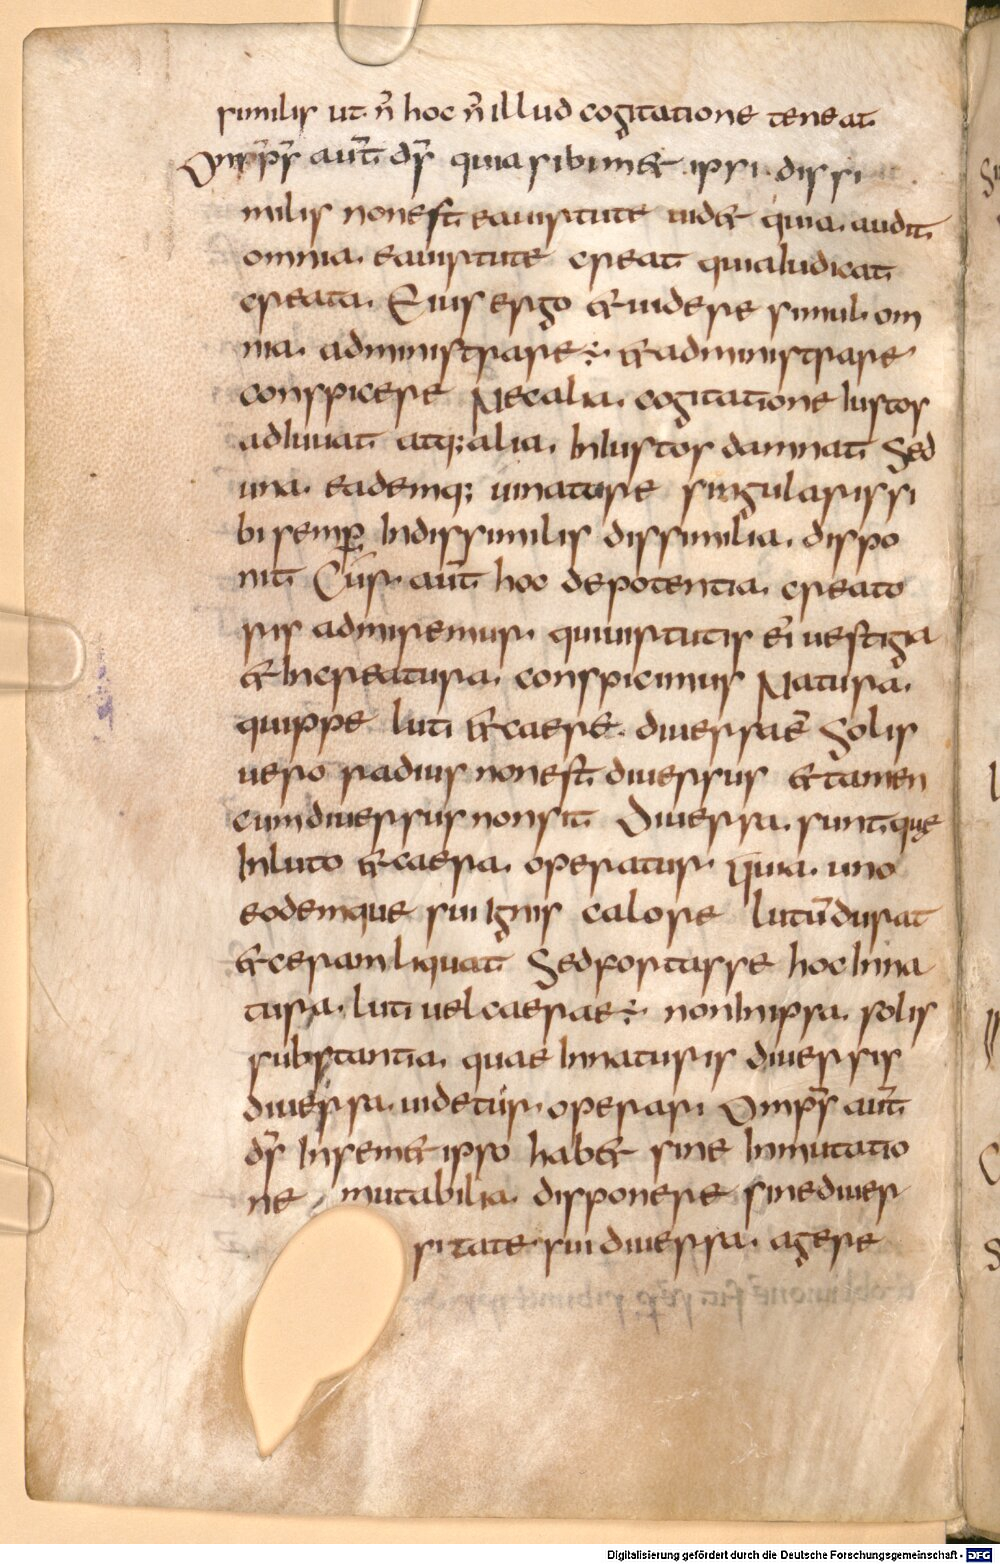 similis ut n̄ hoc n̄ illud cogitatione teneat
Omp̄s aut̄ d̄s quia sibimet ipsi dissi
milis non est ea uirtute uidet quia audit
omnia ea uirtute creat qua iudicat
creata. Eius ergo & uidere simul om
nia administrare & administrare
conspicere Nec alia cogitatione iustos
adiuuat atq; alia iniustos damnat Sed
una eademq; ui nature singularis si
bi semper indissimilis dissimilia dispo
nit Cur aut̄ hoc de potentia creato
ris admiremur qui uirtutis ei uestigia
& in creatura conspicimus Natura
quippe luti & caere diuersa ē Solis
uero radius non est diuersus & tamen
cum diuersus non sit Diuersa sunt que
in luto & caera operatur Quia uno
eodemque sui ignis calore lutū durat
& ceram liquat Sed fortasse hoc in na
tura luti uel caerae non in ipsa solis
substantia quae in naturis diuersis
diuersa uidetur operari Omp̄s aut̄
d̄s in semet ipso habet sine inmutatio
ne mutabilia disponere sine diuer
sitate sui diuersa agere
Digitalisierung gefördert durch die Deutsche Forschungsgemeinschaft - DFG